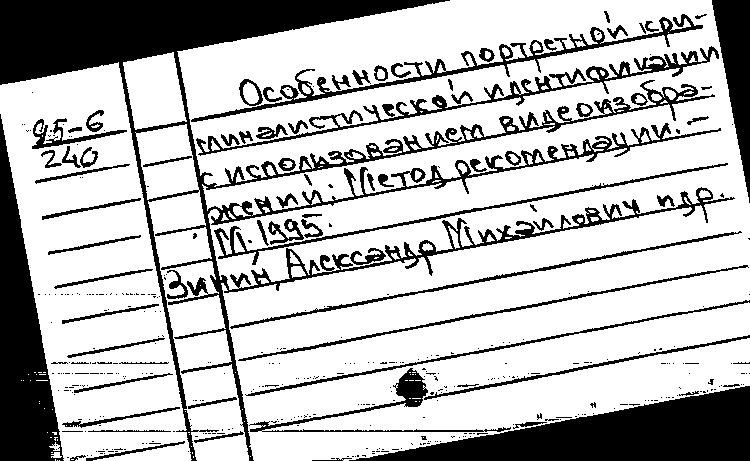 95-6
240
Особенности портретной кри-
миналистической идентификации
с использованием видеоизобра-
жений: Метод рекомендации. -
М. 1995.
Зинин, Александр Михайлович и др.